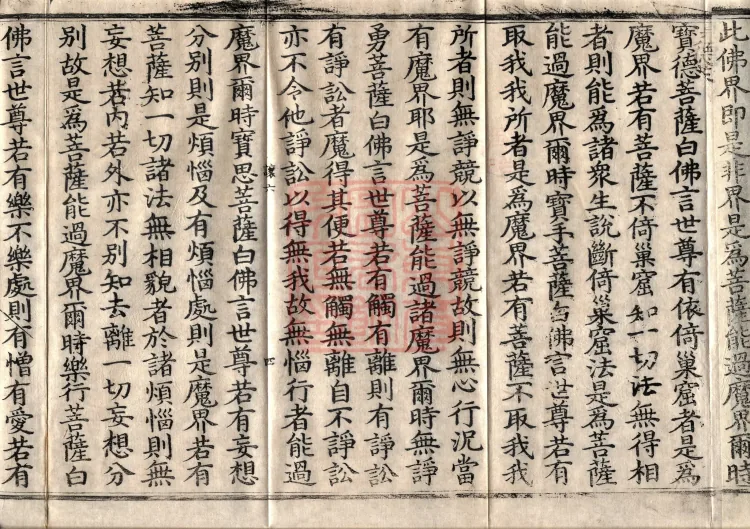 此佛界即是非界是為菩薩能過魔界爾時
寶德菩薩白佛言世尊有依倚巢窟者是為
魔界若有菩薩不倚巢窟知一切法無得相
者則能為諸衆生說斷倚巢窟法是為菩薩
能過魔界爾時寶手菩薩白佛言世尊若有
取我我所者是為魔界若有菩薩不取我我
所者則無諍競以無諍競故則無心行況當
有魔界耶是為菩薩能過諸魔界爾時無諍
勇菩薩白佛言世尊若有觸有離則有諍訟
有諍訟者魔得其便若無觸無離自不諍訟
亦不令他諍訟以得無我故無惱行者能過
讓六
四
魔界爾時寶思菩薩白佛言世尊若有妄想
分別則是煩惱及有煩惱處則是魔界若有
菩薩知一切諸法無相貌者於諸煩惱則無
妄想若内若外亦不別知去離一切妄想分
別故是為菩薩能過魔界爾時樂行菩薩白
佛言世尊若有樂不樂處則有憎有愛若有